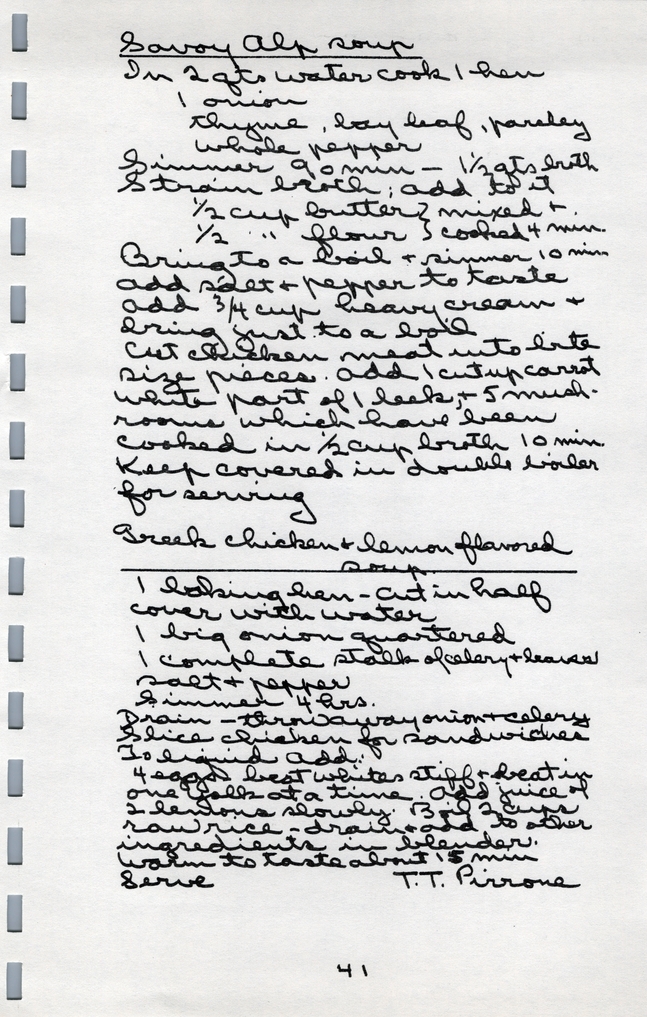 Savoy Alp soup
In 2 qts water cook 1 hen
1 onion
thyme, bay leaf, parsley
whole pepper
Simmer 90 min - 1½ qts broth
Strain broth; add to it
½ cup butter } mixed +
½ " flour } cooked 4 min.
Bring to a boil + simmer 10 min
add salt + pepper to taste
add ¾ cup heavy cream +
bring just to a boil
Cut chicken meat into bite
size pieces. add 1 cut up carrot
white part of 1 leek, + 5 mush-
rooms which have been
cooked in ½ cup broth 10 min.
Keep covered in double boiler
for serving
Greek chicken + lemon flavored
soup.
1 baking hen - cut in half
cover with water
1 big onion quartered
1 complete stalk of celery + leaves
salt + pepper
Simmer 4 hrs.
Drain - throw away onion + celery
Slice chicken for sandwiches
To liquid add:
4 eggs beat whites stiff + beat in
one yolk at a time. Add juice of
2 lemons slowly. Boil 2 cups
raw rice - drain + add to other
ingredients in blender.
Warm to taste about 15 min
Serve T.T. Pirrone
41